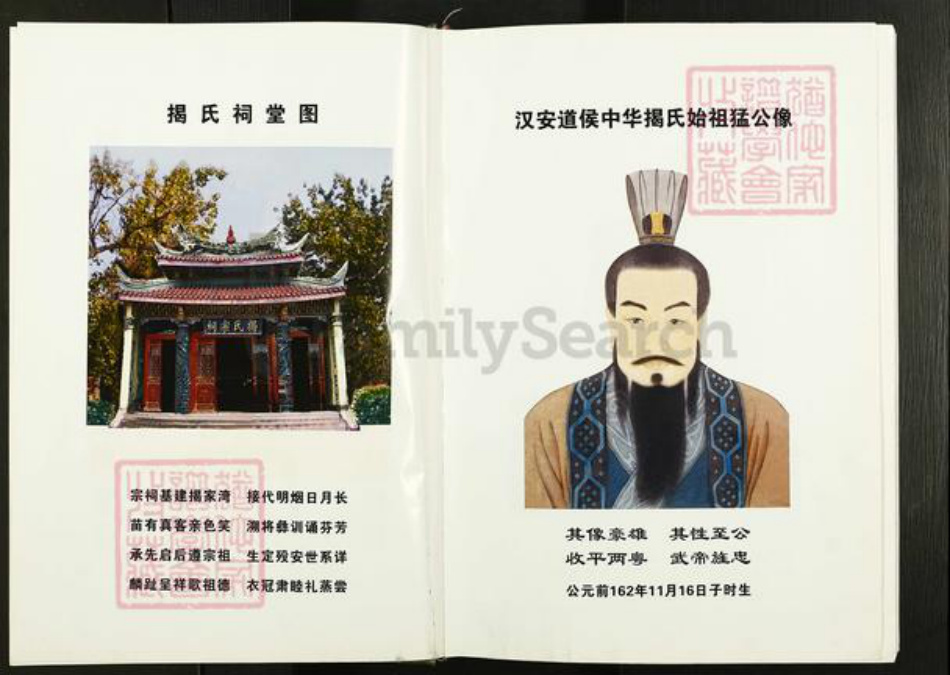 揭氏祠堂图
揭氏家祠
宗祠基建揭家湾 接代明烟日月长
苗有真客亲色笑 溯将彝训诵芬芳
承先启后遵宗祖 生定殁安世系详
麟趾呈祥歌祖德 衣冠肃睦礼蒸尝
汉安道侯中华揭氏始祖猛公像
其像豪雄 其性至公
收平两粤 武帝旌忠
公元前162年11月16日子时生
FamilySearch